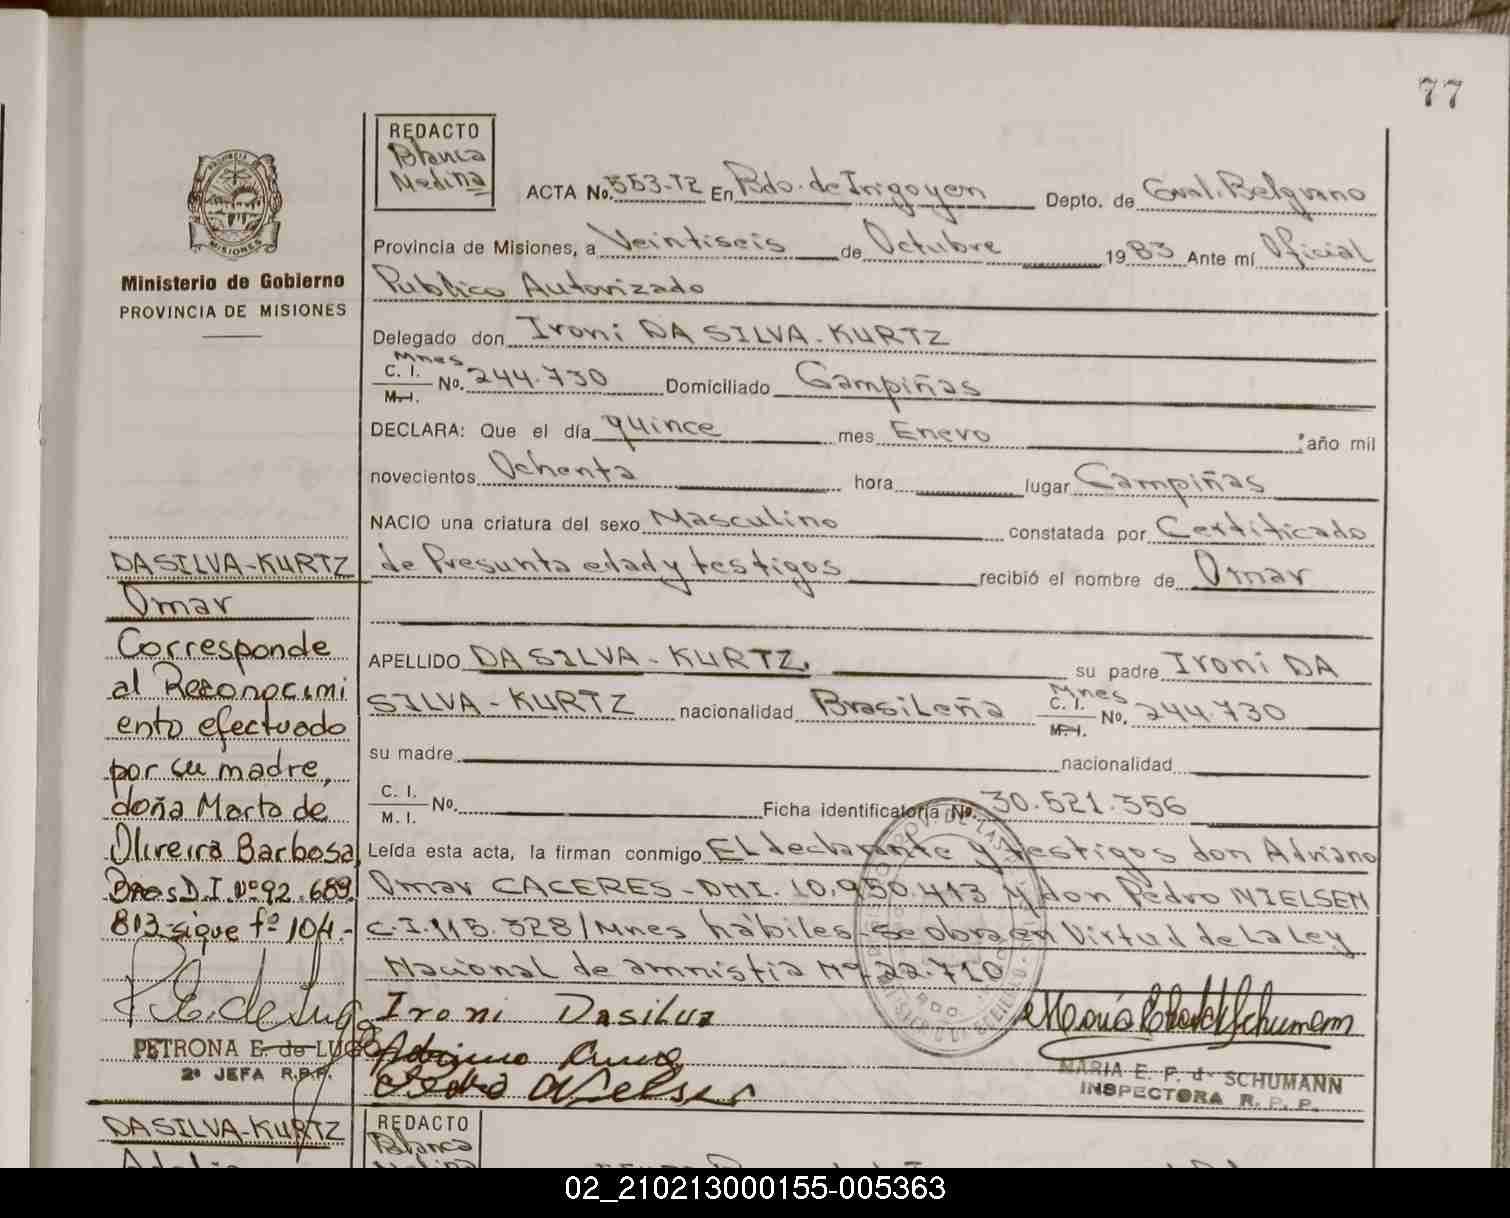 77
REDACTO
Blanca
Medina
ACTA No. 553-T2 En Bdo. de Irigoyen Depto. de Gral. Belgrano
Provincia de Misiones, a Veintiseis de Octubre 1983 Ante mí Oficial
Publico Autorizado
PROVINCIA DE
MISIONES
Ministerio de Gobierno
PROVINCIA DE MISIONES
Delegado don Ironi DA SILVA-KURTZ
Mnes
C. I. No. 244.730 Domiciliado Campiñas
M. I.
DECLARA: Que el día quince mes Enero año mil
novecientos Ochenta hora lugar Campiñas
NACIO una criatura del sexo Masculino constatada por Certificado
de Presunta edad y testigos recibió el nombre de Omar
APELLIDO DA SILVA-KURTZ. su padre Ironi DA
SILVA-KURTZ nacionalidad Brasileña Mnes C. I. No. 244.730
M. I.
su madre nacionalidad
C. I. No. Ficha identificatoria No. 30.521.356
M. I.
Leída esta acta, la firman conmigo El declarante y testigos don Adriano
Omar CACERES-DNI. 10.950.413 y don Pedro NIELSEN
C.I. 115.328/Mnes hábiles-Se obra en Virtud de La Ley
Nacional de amnistia Nº 22.710
DA SILVA-KURTZ
Omar
Corresponde
al Reconocimi
ento efectuado
por su madre,
doña Marta de
Oliveira Barbosa,
D.I. Nº 92.689.
813-sigue fº 104.-
Ironi Dasilva
PETRONA E. de LUGO
2ª JEFA R.P.P.
MARIA E. P. d. SCHUMANN
INSPECTORA R. P. P.
DA SILVA-KURTZ
REDACTO
Blanca
02_210213000155-005363